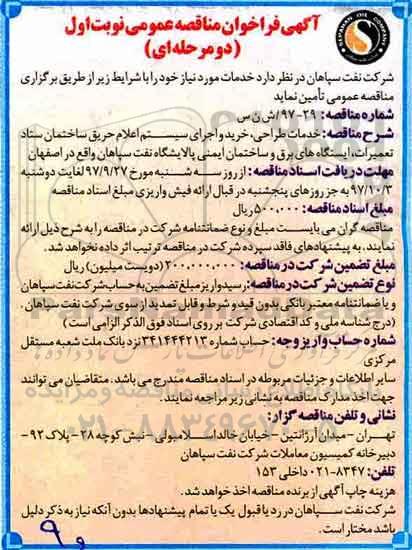 آگهی فراخوان مناقصه عمومی نوبت اول
(دو مرحله ای)
SEPAHAN OIL COMPANY
شرکت نفت سپاهان در نظر دارد خدمات مورد نیاز خود را با شرایط زیر از طریق برگزاری
مناقصه عمومی تأمین نماید
شماره مناقصه: ۲۹-۹۷/ش ن س
شرح مناقصه: خدمات طراحی، خرید و اجرای سیستم اعلام حریق ساختمان ستاد
تعمیرات، ایستگاه های برق و ساختمان ایمنی پالایشگاه نفت سپاهان واقع در اصفهان
مهلت دریافت اسناد مناقصه: از روز سه شنبه مورخ ۹۷/۹/۲۷ لغایت دوشنبه
۹۷/۱۰/۳ به جز روزهای پنجشنبه در قبال ارائه فیش واریزی مبلغ اسناد مناقصه
مبلغ اسناد مناقصه: ۵۰۰,۰۰۰ ریال
مناقصه گران می بایست مبلغ و نوع ضمانتنامه شرکت در مناقصه را به شرح ذیل ارائه
نمایند. به پیشنهادهای فاقد سپرده شرکت در مناقصه ترتیب اثر داده نخواهد شد.
مبلغ تضمین شرکت در مناقصه: ۲۰۰,۰۰۰,۰۰۰ (دویست میلیون) ریال
نوع تضمین شرکت در مناقصه: رسید واریز مبلغ تضمین به حساب شرکت نفت سپاهان
و یا ضمانتنامه معتبر بانکی بدون قید و شرط و قابل تمدید از سوی شرکت نفت سپاهان.
(درج شناسه ملی و کد اقتصادی شرکت بر روی اسناد فوق الذکر الزامی است)
شماره حساب واریز وجه: حساب شماره ۳۴۱۴۴۴۲۱۳ نزد بانک ملت شعبه مستقل
مرکزی
سایر اطلاعات و جزئیات مربوطه در اسناد مناقصه مندرج می باشد. متقاضیان می توانند
جهت اخذ مدارک مناقصه به نشانی زیر مراجعه نمایند.
۰۲۱-۸۸۳۴۹۶۷۰-۵
نشانی و تلفن مناقصه گزار:
تهران - میدان آرژانتین - خیابان خالد اسلامبولی - نبش کوچه ۲۸ - پلاک ۹۲ -
دبیرخانه کمیسیون معاملات شرکت نفت سپاهان
تلفن: ۸۳۴۷-۰۲۱ داخلی ۱۵۳
هزینه چاپ آگهی از برنده مناقصه اخذ خواهد شد.
شرکت نفت سپاهان در رد یا قبول یک یا تمام پیشنهادها بدون آنکه نیاز به ذکر دلیل
باشد مختار است.